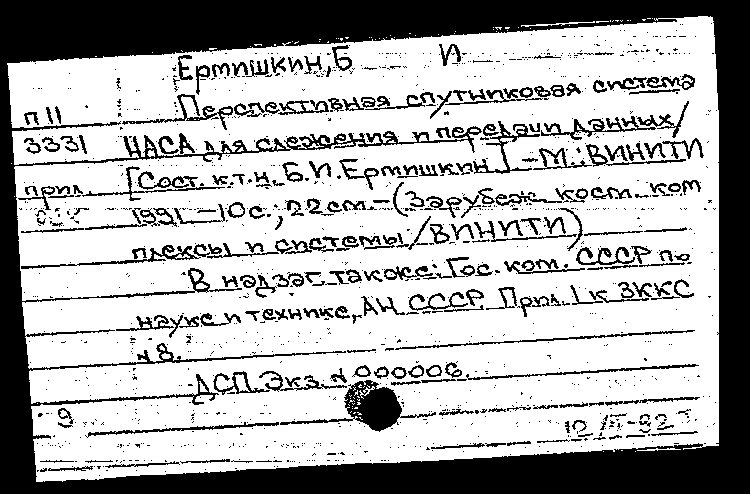 Ермишкин, Б И
П11 Перспективная спутниковая система
3331 НАСА для слежения и передачи данных/
прил. [Сост. к.т.н. Б.И. Ермишкин] – М.: ВИНИТИ
1991 – 10с.; 22см. – (Зарубеж. косм. ком
плексы и системы / ВИНИТИ)
В надзаг. также: Гос. ком. СССР по
науке и технике, АН СССР. Прил. 1 к ЗККС
N 8.
ДСП. Экз. N 000006.
9